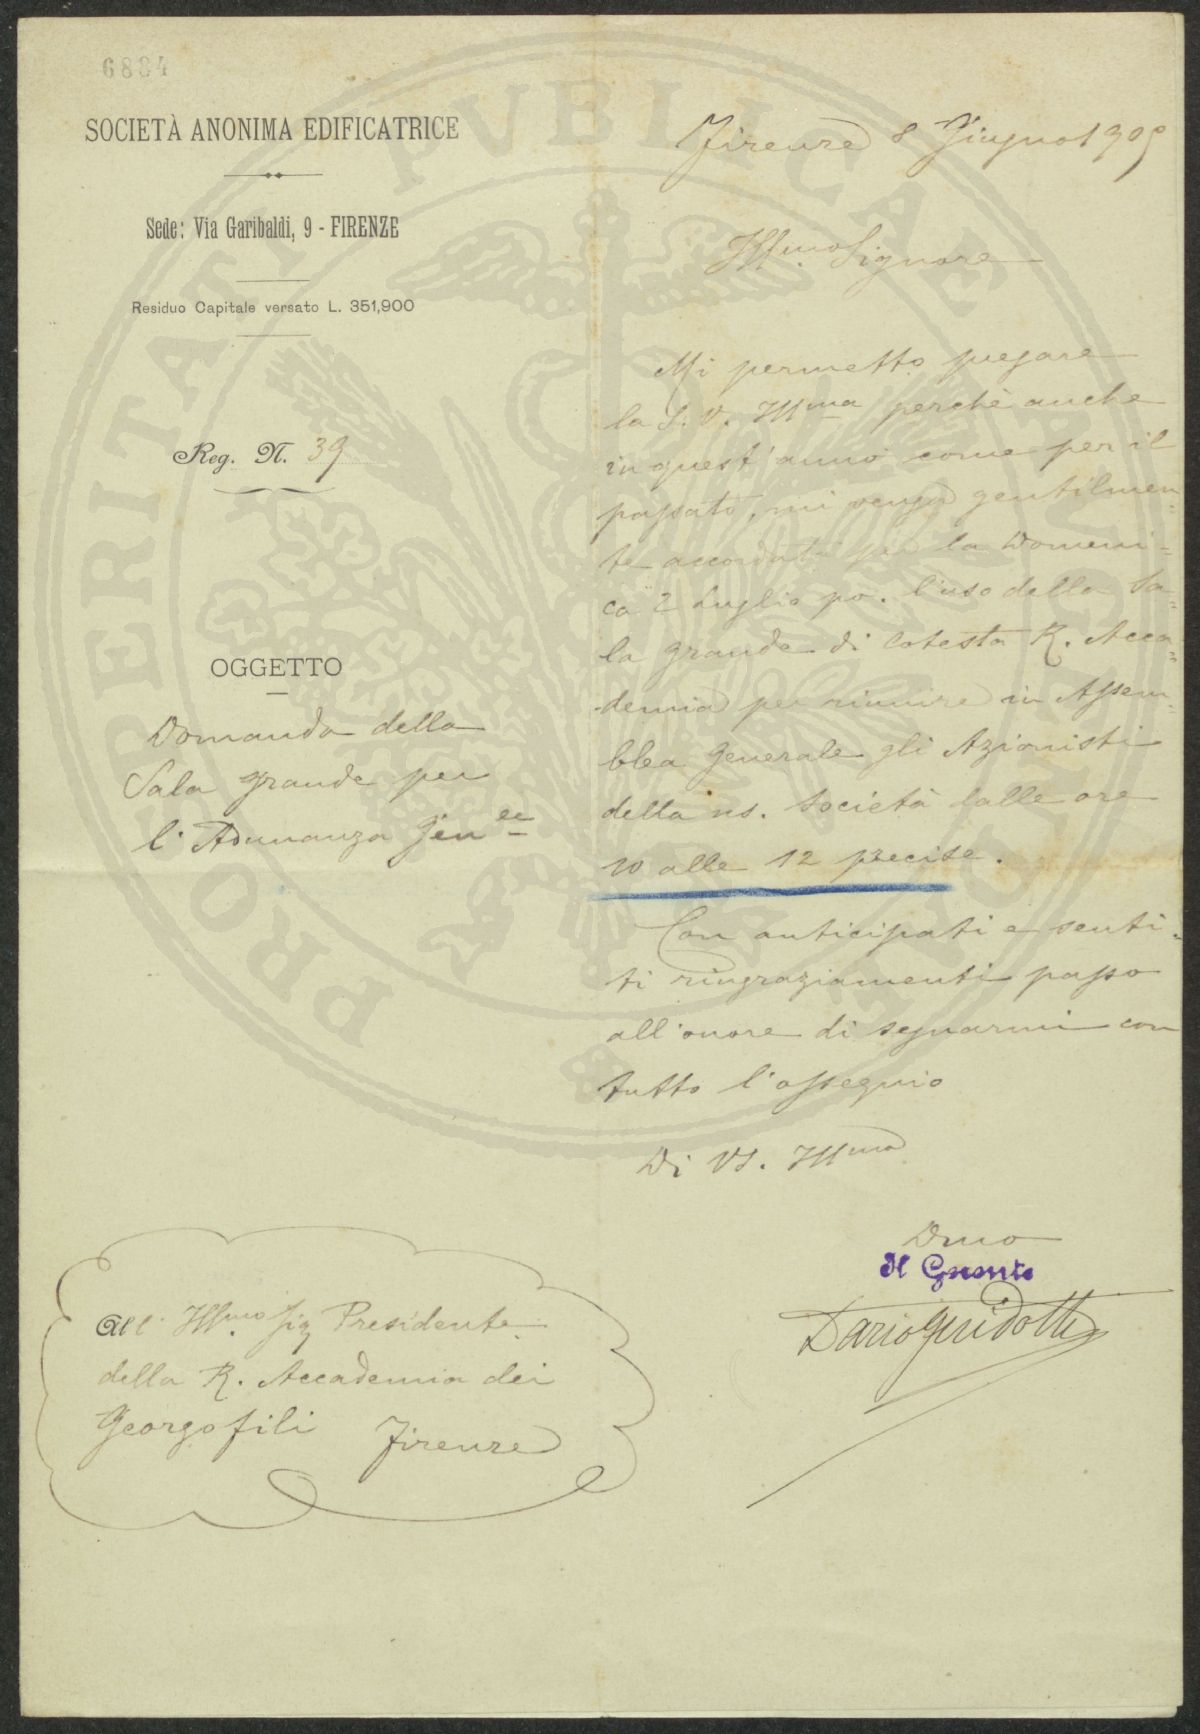 6884
SOCIETÀ ANONIMA EDIFICATRICE
Sede: Via Garibaldi, 9 - FIRENZE
Residuo Capitale versato L. 351,900
Reg. N. 39
OGGETTO
Domanda della
Sala grande per
l'Adunanza Genle
All' Illmo Sig Presidente
della R. Accademia dei
Georgofili Firenze
Firenze 8 Giugno 1905
Illmo Signore
Mi permetto pregare
la S. V. Illma perchè anche
in quest'anno come per il
passato, mi venga gentilmen-
te accordato per la Domeni-
ca 2 Luglio po. l'uso della Sa-
la grande di Cotesta R. Acca-
demia per riunire in Assem-
blea Generale gli Azionisti
della ns. Società dalle ore
10 alle 12 precise.
Con anticipati e senti-
ti ringraziamenti passo
all'onore di segnarmi con
tutto l'ossequio
Di VS. Illma
Dmo
Il Gerente
Dario Guidotti
PROSPERITATI PVBLICAE AVGENDAE